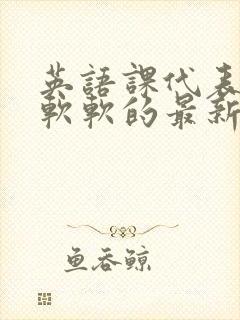 英語課代表
軟軟的最新
鱼吞鲸